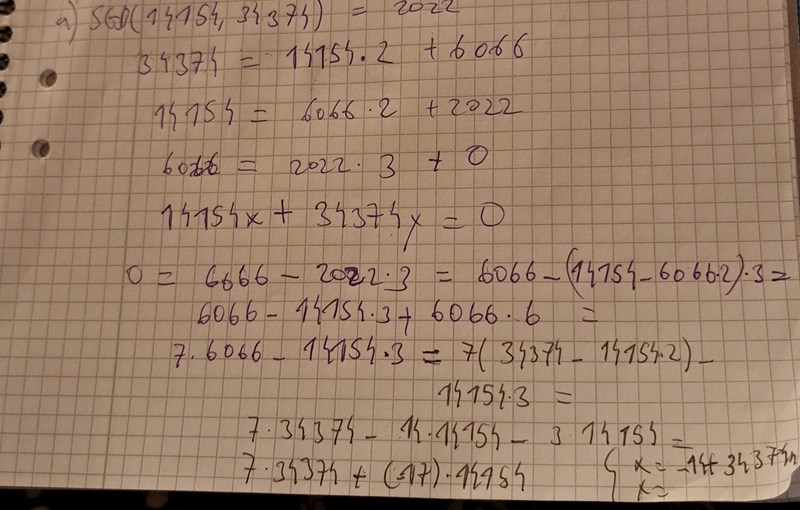 a) SGD(14154, 34374) = 2022
34374 = 14154·2 + 6066
14154 = 6066·2 + 2022
6066 = 2022·3 + 0
14154x + 34374y = 0
0 = 6066 - 2022·3 = 6066 - (14154 - 6066·2)·3 =
6066 - 14154·3 + 6066·6 =
7·6066 - 14154·3 = 7(34374 - 14154·2) -
14154·3 =
7·34374 - 14·14154 - 3·14154 =
7·34374 + (-17)·14154
{ x = -14+34374n
x =